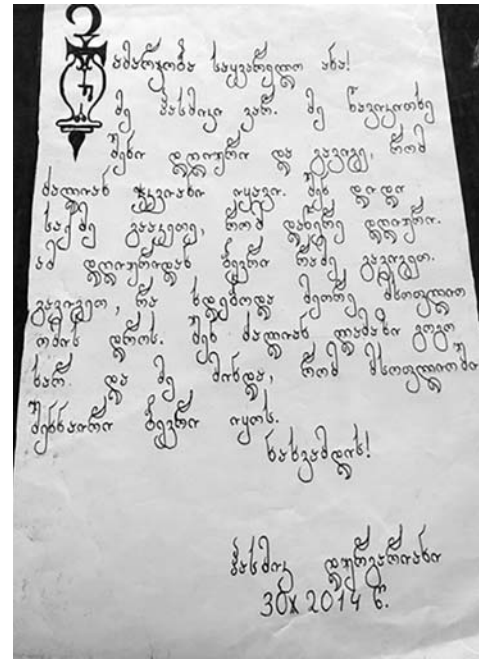 გამარჯობა საყვარელო ანა!
მე ჰასმიკი ვარ. მე წავიკითხე
შენი დღიური და გავიგე, რომ
ძალიან ჭკვიანი იყავი. შენ დიდი
საქმე გააკეთე, რომ დაწერე დღიური.
ამ დღიურიდან ბევრი რამე გავიგეთ.
გავიგეთ, რა ხდებოდა მეორე მსოფლიო
ომის დროს. შენ ძალიან ლამაზი გოგო
ხარ. და მე მინდა, რომ მსოფლიოში
შენნაირი ბევრი იყოს.
ნახვამდის!
ჰასმიკ დურგარიანი
30X 2014 წ.